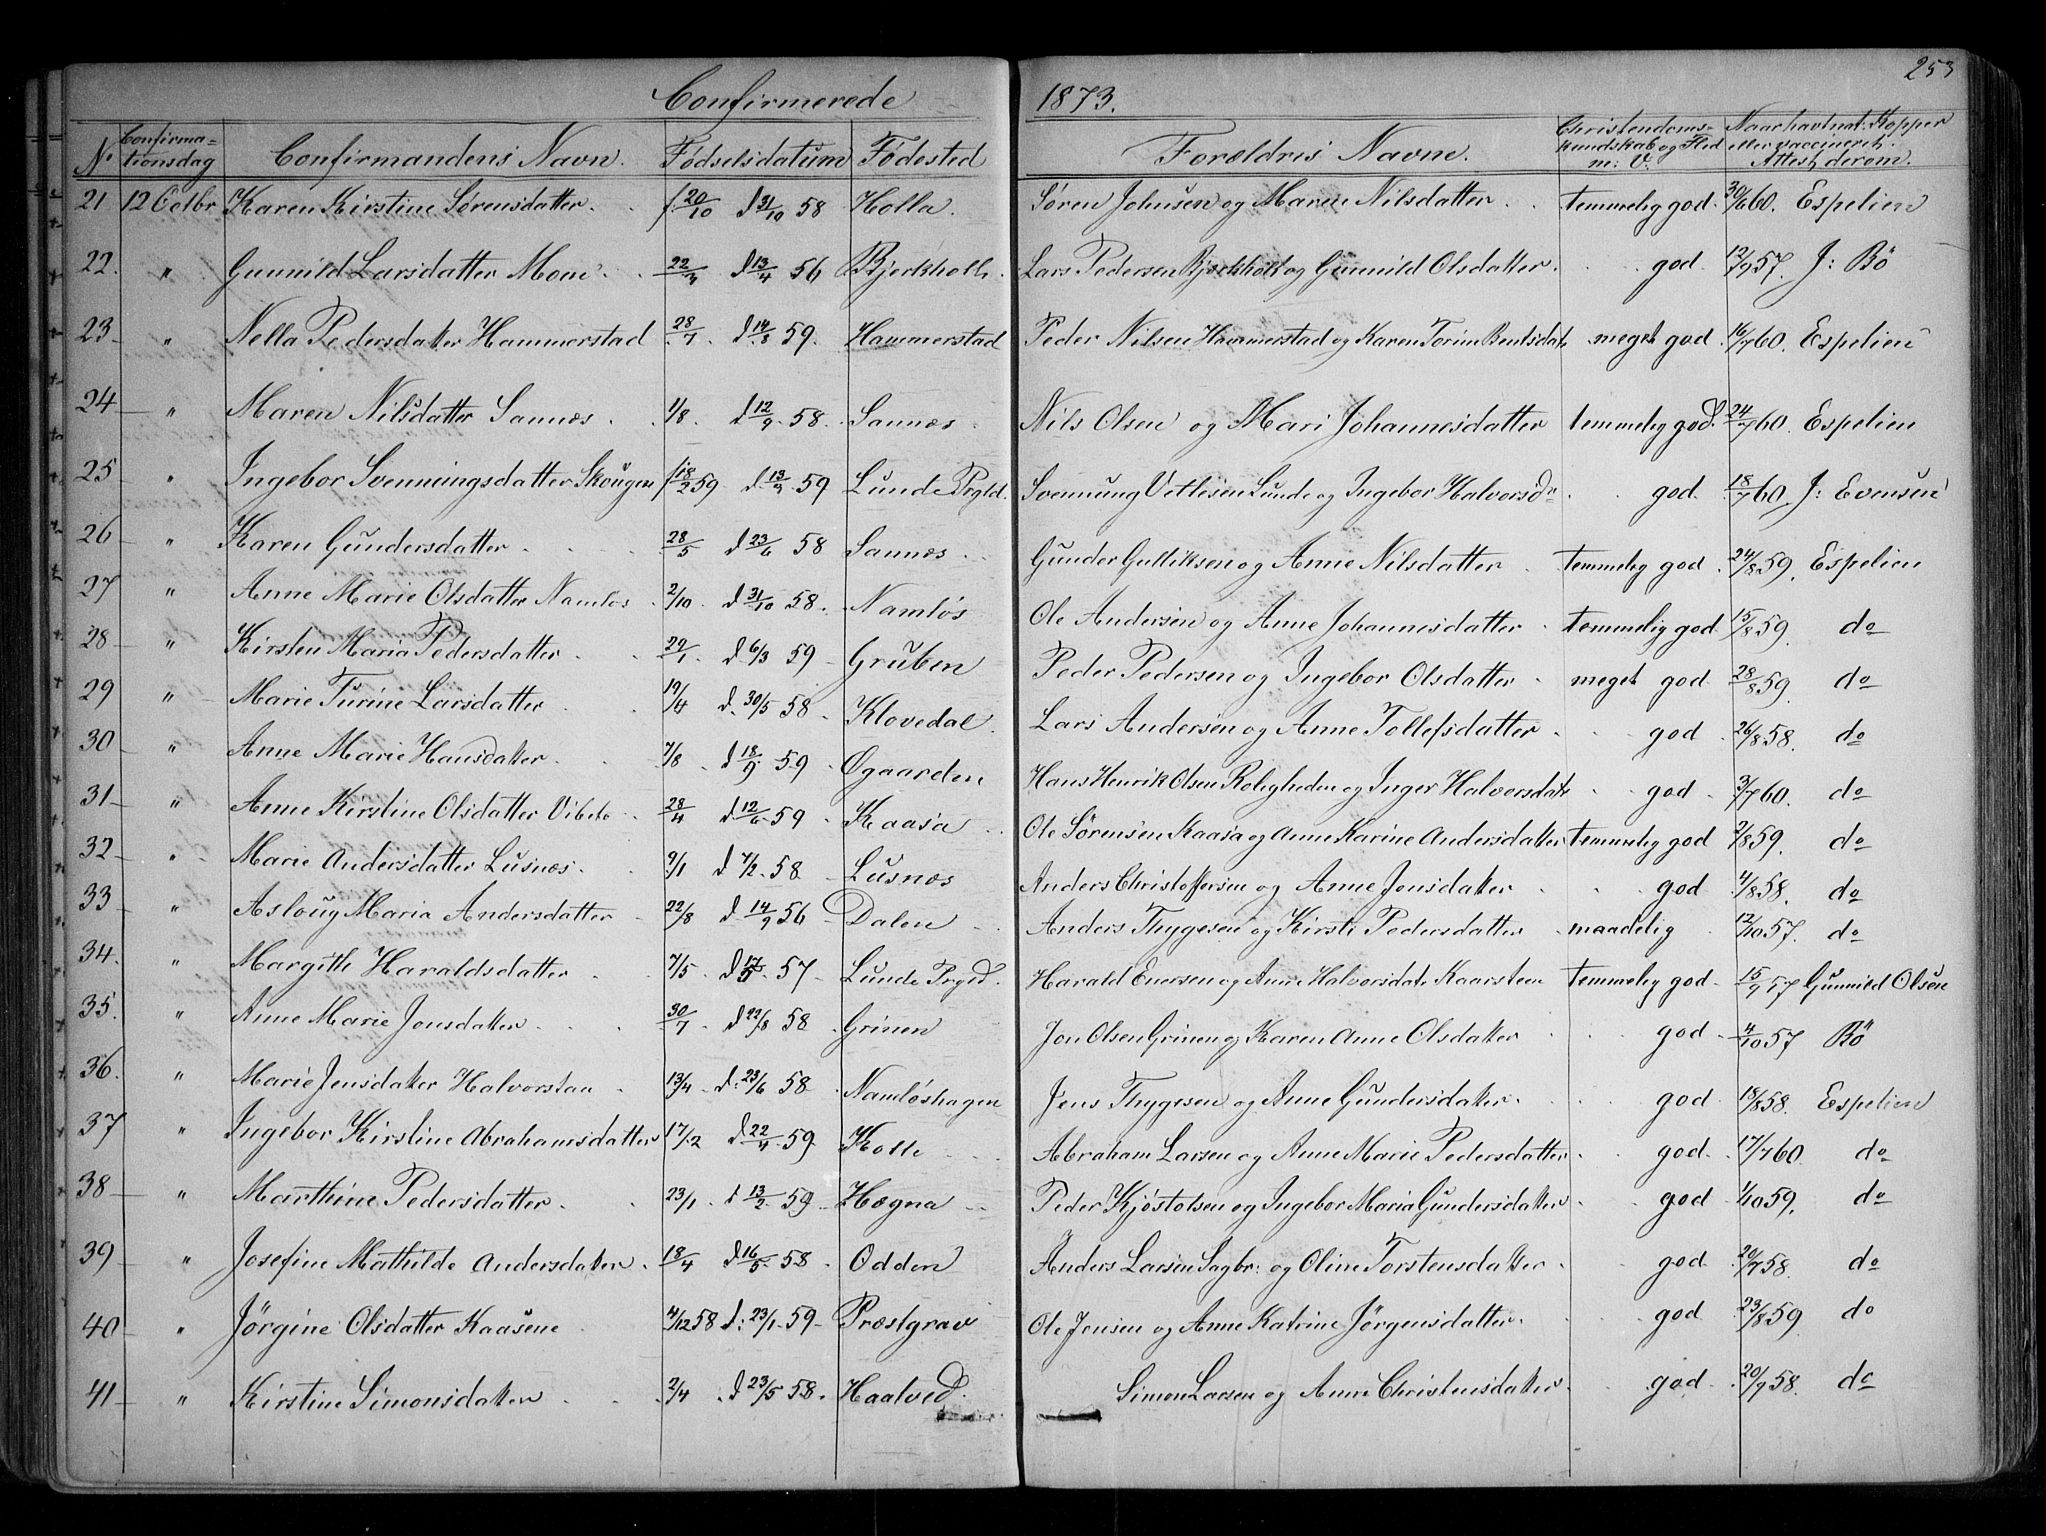 253
Confirmerede 1873.
No Confirmationsdag Confirmandens Navn. Fødselsdatum Fødested Forældres Navne. Christendoms-kundskab og Flid m: V. Naar havt nat: Kopper eller vaccineret. Attest derom.
21 12 Octbr Karen Kirstine Sørensdatter. f. 20/10 d 31/10 58 Holla. Søren Johnsen og Maren Nilsdatter temmelig god. 30/6 60. Espelien
22. " Gunnild Larsdatter Moen 22/3 d 13/4 56 Bjerkholt. Lars Pedersen Bjerkholt og Gunnild Olsdatter. god 12/9 57. J: Bö
23 " Nella Pedersdatter Hammerstad 28/7. d 14/8 59. Hammerstad Peder Nilsen Hammerstad og Karen Torine Bentsdatr meget god 16/7 60. Espelien
24 " Maren Nilsdatter Sannæs 1/8 d 12/9 58. Sannæs Nils Olsen og Mari Johannesdatter temmelig god. 24/7 60. Espelien
25 " Ingebor Svenningsdatter Skougen f 18/2 59 d. 13/3 59 Lunde Prgld. Svennung Vetlesen Lunde og Ingebor Halvorsdr god 18/7 60. J: Evensen
26 " Karen Gundersdatter 28/5 d 23/6 58 Sannæs Gunder Gulliksen og Anne Nilsdatter temmelig god 24/8 59. Espelien
27 " Anne Marie Olsdatter Namløs 2/10. d 31/10 58. Namløs Ole Andersen og Anne Johannesdatter temmelig god 15/8 59. do
28 " Kirsten Maria Pedersdatter 29/1. d 6/3 59 Gruben Peder Pedersen og Ingebor Olsdatter meget god 28/8 59. do
29 " Marie Turine Larsdatter 19/4 d. 30/5 58 Klovedal. Lars Andersen og Anne Tollefsdatter god 26/8 58. do
30 " Anne Marie Hansdatter. 7/8 d 18/9 59 Øgaarden Hans Henrik Olsen Roligheden og Inger Halvorsdatr god 3/7 60. do
31 " Anne Kirstine Olsdatter Vibeto 28/4 d 12/6 59 Kaasa Ole Sørensen Kaasa og Anne Karine Andersdatter temmelig god 2/8 59. do
32 " Marie Andersdatter Lusnæs. 9/1 d 7/2 58 Lusnæs Anders Christoffersen og Anne Jonsdatter god 4/8 58. do
33 " Asloug Maria Andersdatter 22/8 d 14/9 56 Dalen Anders Thygesen og Kirsti Pedersdatter maadelig 12/10 57. do
34. " Margith Haraldsdatter 7/5 d 17/5 57 Lunde Prgd. Harald Enersen og Anne Halvorsdatr Kaarsteen temmelig god 15/9 57 Gunnild Olsen
35. " Anne Marie Jonsdatter 30/7 d 22/8 58 Grinen Jon Olsen Grinen og Karen Anne Olsdatter god 4/10 57 Bö
36. " Marie Jensdatter Halvorstaa 13/4 d: 23/6 58 Namløshagen Jens Thygesen og Anne Gundersdatter. god 18/8 58. Espelien
37 " Ingebor Kirstine Abrahamsdatter 17/12 d 22/4 59 Holte Abraham Larsen og Anne Marie Pedersdatter god 17/7 60. do
38 " Marthine Pedersdatter. 23/1. d 13/2 59 Hægna Peder Kjøstolsen og Ingebor Maria Gundersdatter god 1/10 59. do
39 " Josefine Mathilde Andersdatter. 18/4 d 16/5 58 Odden Anders Larsen Sagbr: og Oline Torstensdatter god 20/7 58. do
40 " Jørgine Olsdatter Kaasene 4/12 58 d: 23/1 59 Præstgrav Ole Jensen og Anne Katrine Jørgensdatter. god 23/8 59 do
41 " Kirstine Simonsdatter 2/4 d 23/5 58. Haatved. Simon Larsen og Anne Christensdatter. god 20/9 58. do